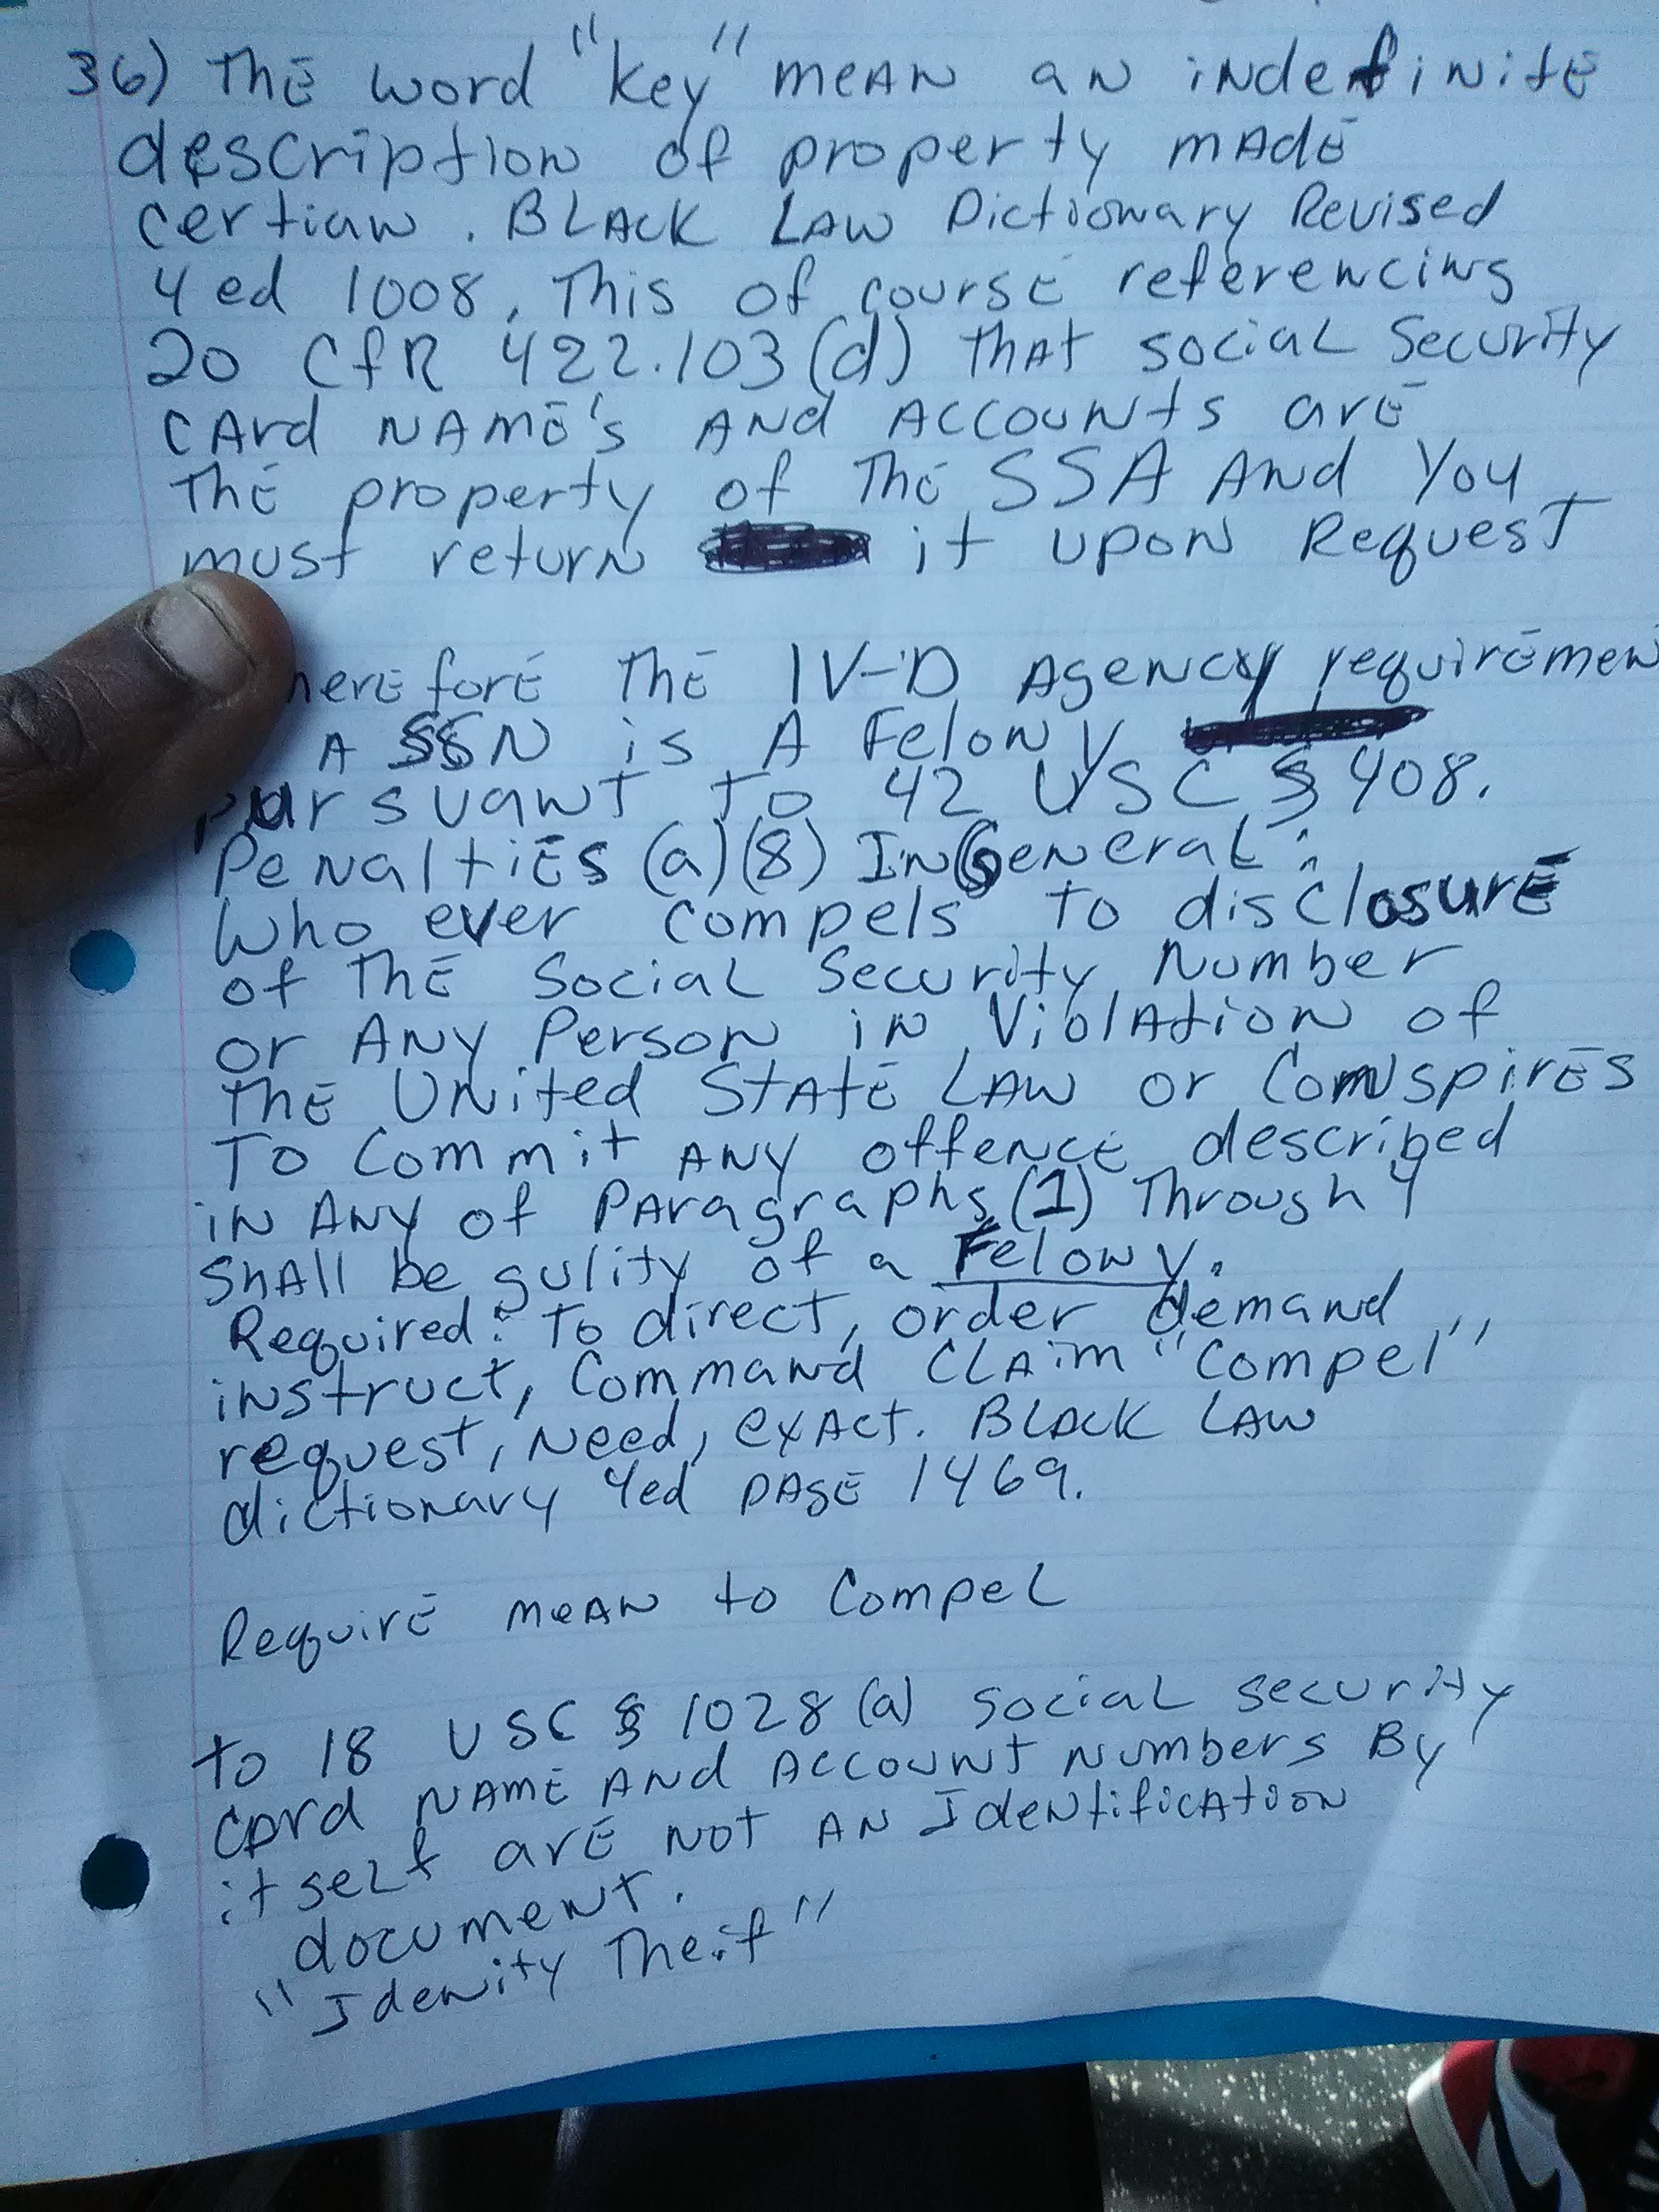 36) The word "key" mean an indefinite
description of property made
certian. Black Law Dictionary Revised
4 ed 1008. This of course referencing
20 CfR 422.103(d) that social Security
card name's and accounts are
the property of the SSA and you
must return it upon Request
herefore the IV-D Agency requiremen
A SSN is A Felony
pursuant to 42 USC § 408.
Penalties (a)(8) In General:
Who ever compels to disclosure
of the Social Security Number
or Any Person in Violation of
the United State Law or Conspires
To Commit any offence described
in Any of Paragraphs (1) Through 4
Shall be gulity of a Felony.
Required: To direct, order demand
instruct, Command Claim "Compel"
request, Need, exact. Black Law
dictionary 4ed page 1469.
Require mean to Compel
to 18 USC § 1028(a) social security
card name and account numbers By
itself are not an Identification
document.
"Idenity Theif"